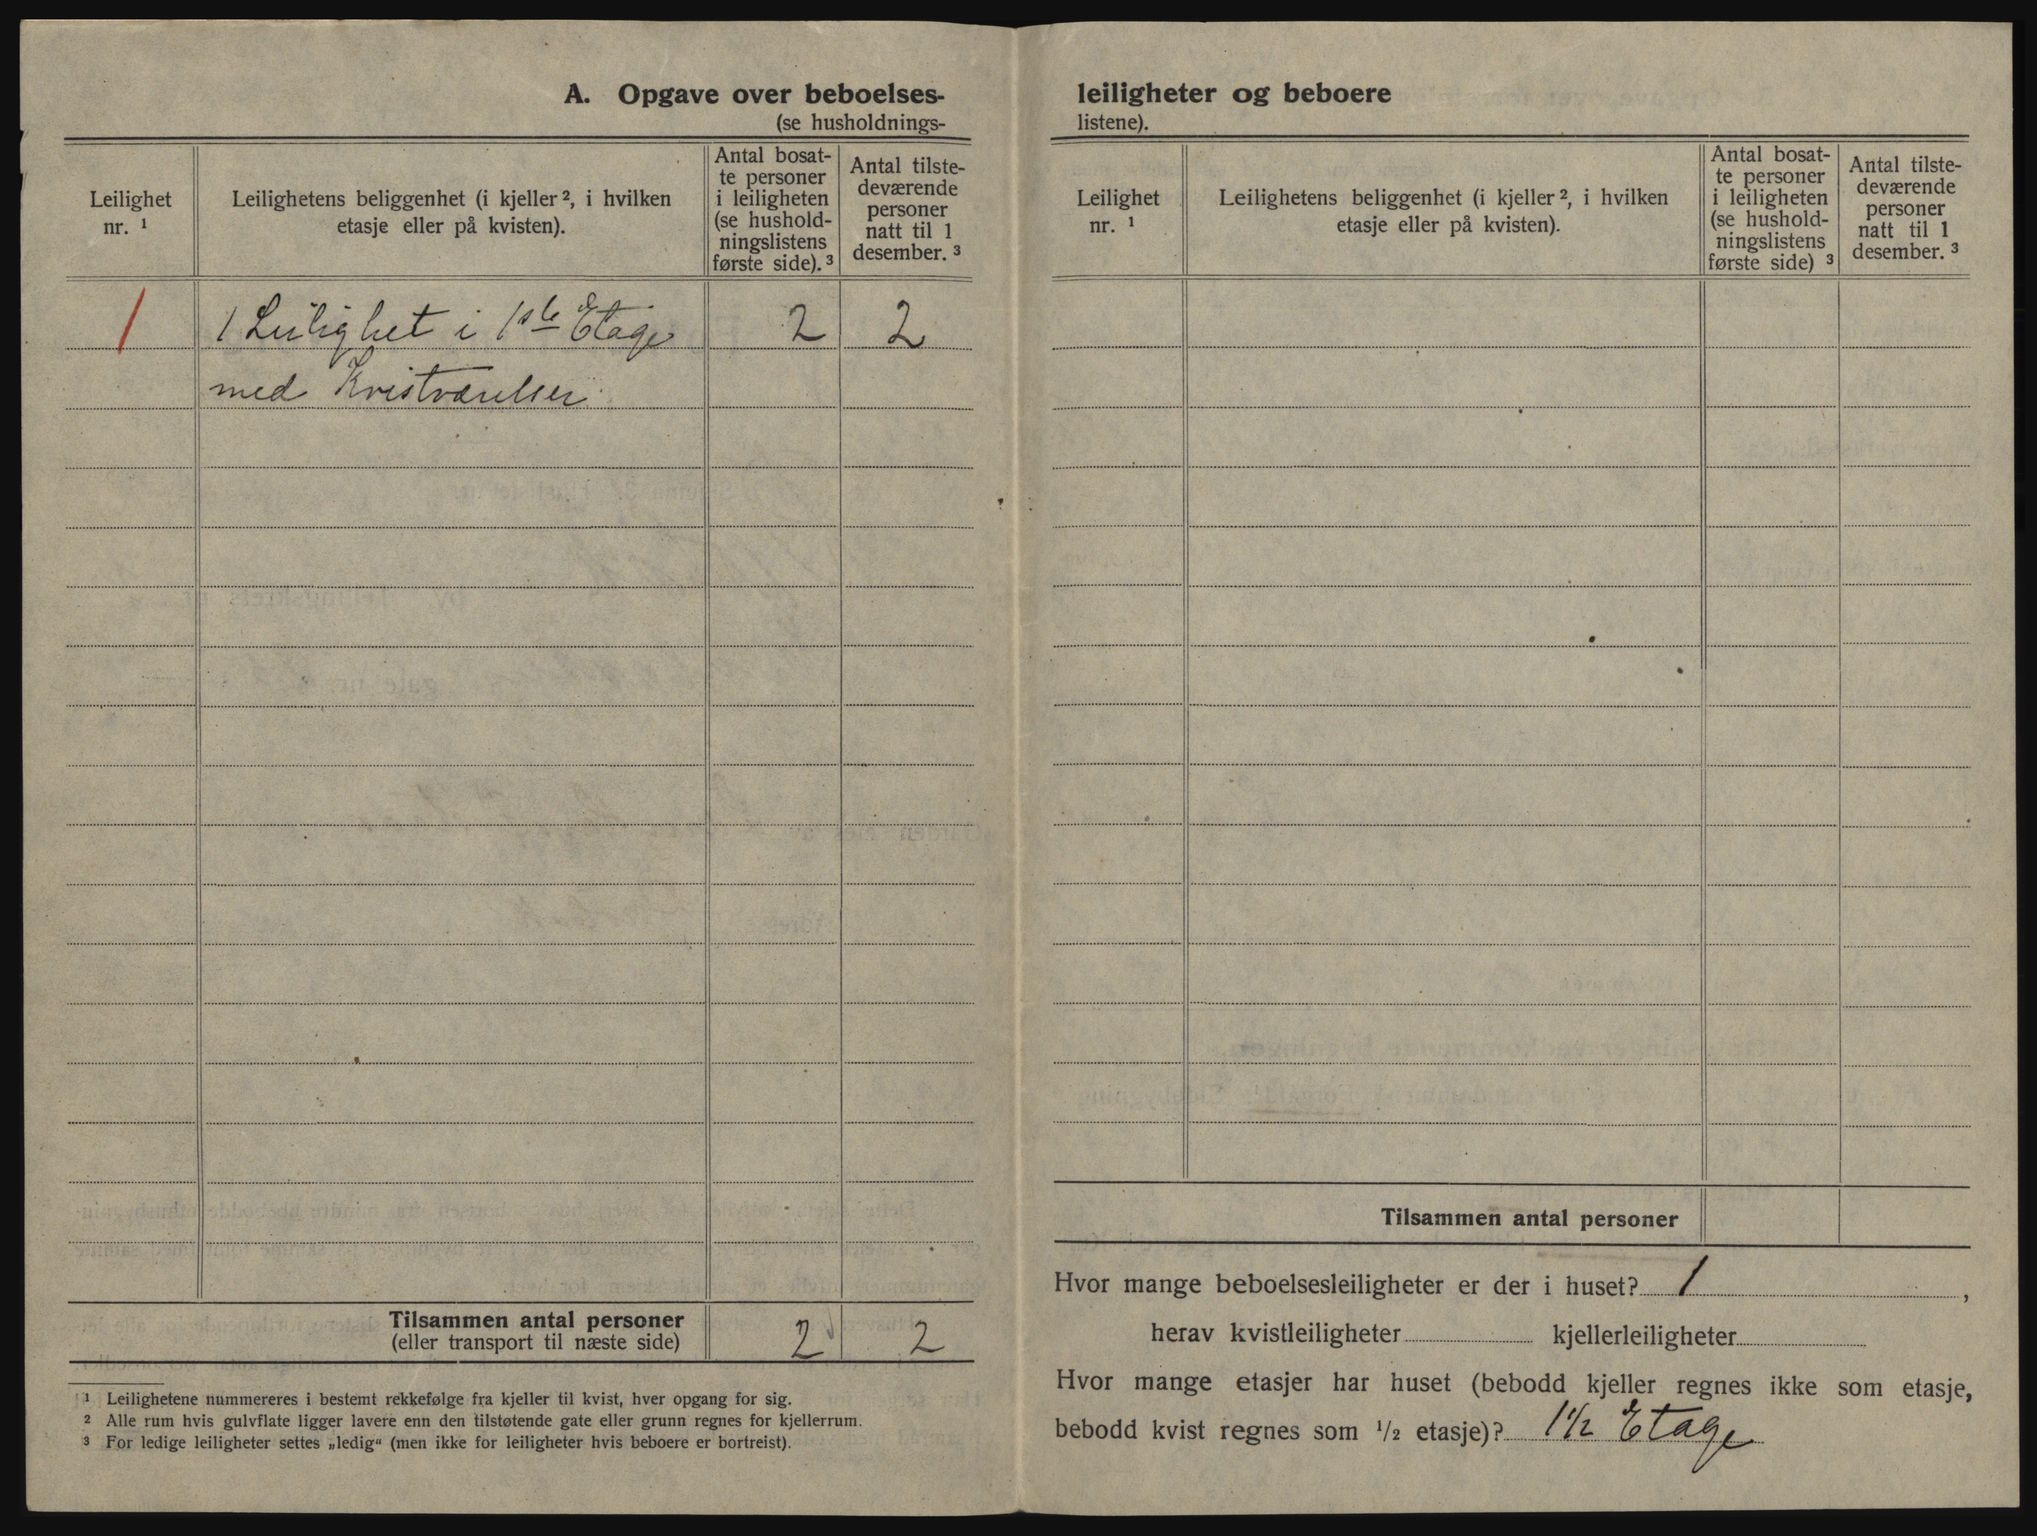 A. Opgave over beboelses-
(se husholdnings-
Leilighet
nr. ¹
Leilighetens beliggenhet (i kjeller ², i hvilken
etasje eller på kvisten).
Antal bosat-
te personer
i leiligheten
(se hushold-
ningslistens
første side). ³
Antal tilste-
deværende
personer
natt til 1
desember. ³
1 1 Leilighet i 1ste Etage 2 2
med Kvistværelser
Tilsammen antal personer 2 2
(eller transport til næste side)
¹ Leilighetene nummereres i bestemt rekkefølge fra kjeller til kvist, hver opgang for sig.
² Alle rum hvis gulvflate ligger lavere enn den tilstøtende gate eller grunn regnes for kjellerrum.
³ For ledige leiligheter settes „ledig“ (men ikke for leiligheter hvis beboere er bortreist).
leiligheter og beboere
listene).
Leilighet
nr. ¹
Leilighetens beliggenhet (i kjeller ², i hvilken
etasje eller på kvisten).
Antal bosat-
te personer
i leiligheten
(se hushold-
ningslistens
første side) ³
Antal tilste-
deværende
personer
natt til 1
desember. ³
Tilsammen antal personer
Hvor mange beboelsesleiligheter er der i huset? 1 ,
herav kvistleiligheter kjellerleiligheter
Hvor mange etasjer har huset (bebodd kjeller regnes ikke som etasje,
bebodd kvist regnes som ½ etasje)? 1½ Etage